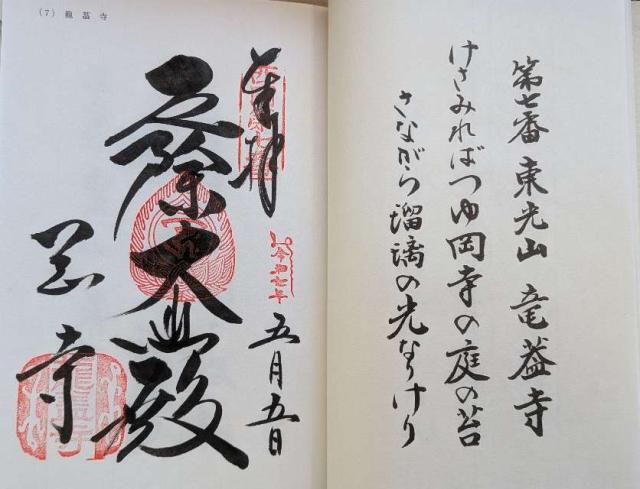 第七番 東光山 竜蓋寺
けさみればつゆ岡寺の庭の苔
さながら瑠璃の光なりけり
(7) 龍蓋寺
奉拝
令和七年
五月五日
厄除大悲殿
岡寺